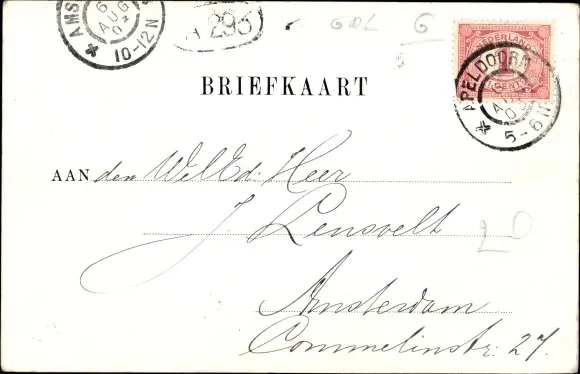 AMS
6
AUG
02
10-12 N
A 293
G
NEDERLAND
CENT
APELDOORN
5-6 N
BRIEFKAART
AAN den WelEd: Heer
J. Lensvelt
20
Amsterdam
Commelinstr: 27.